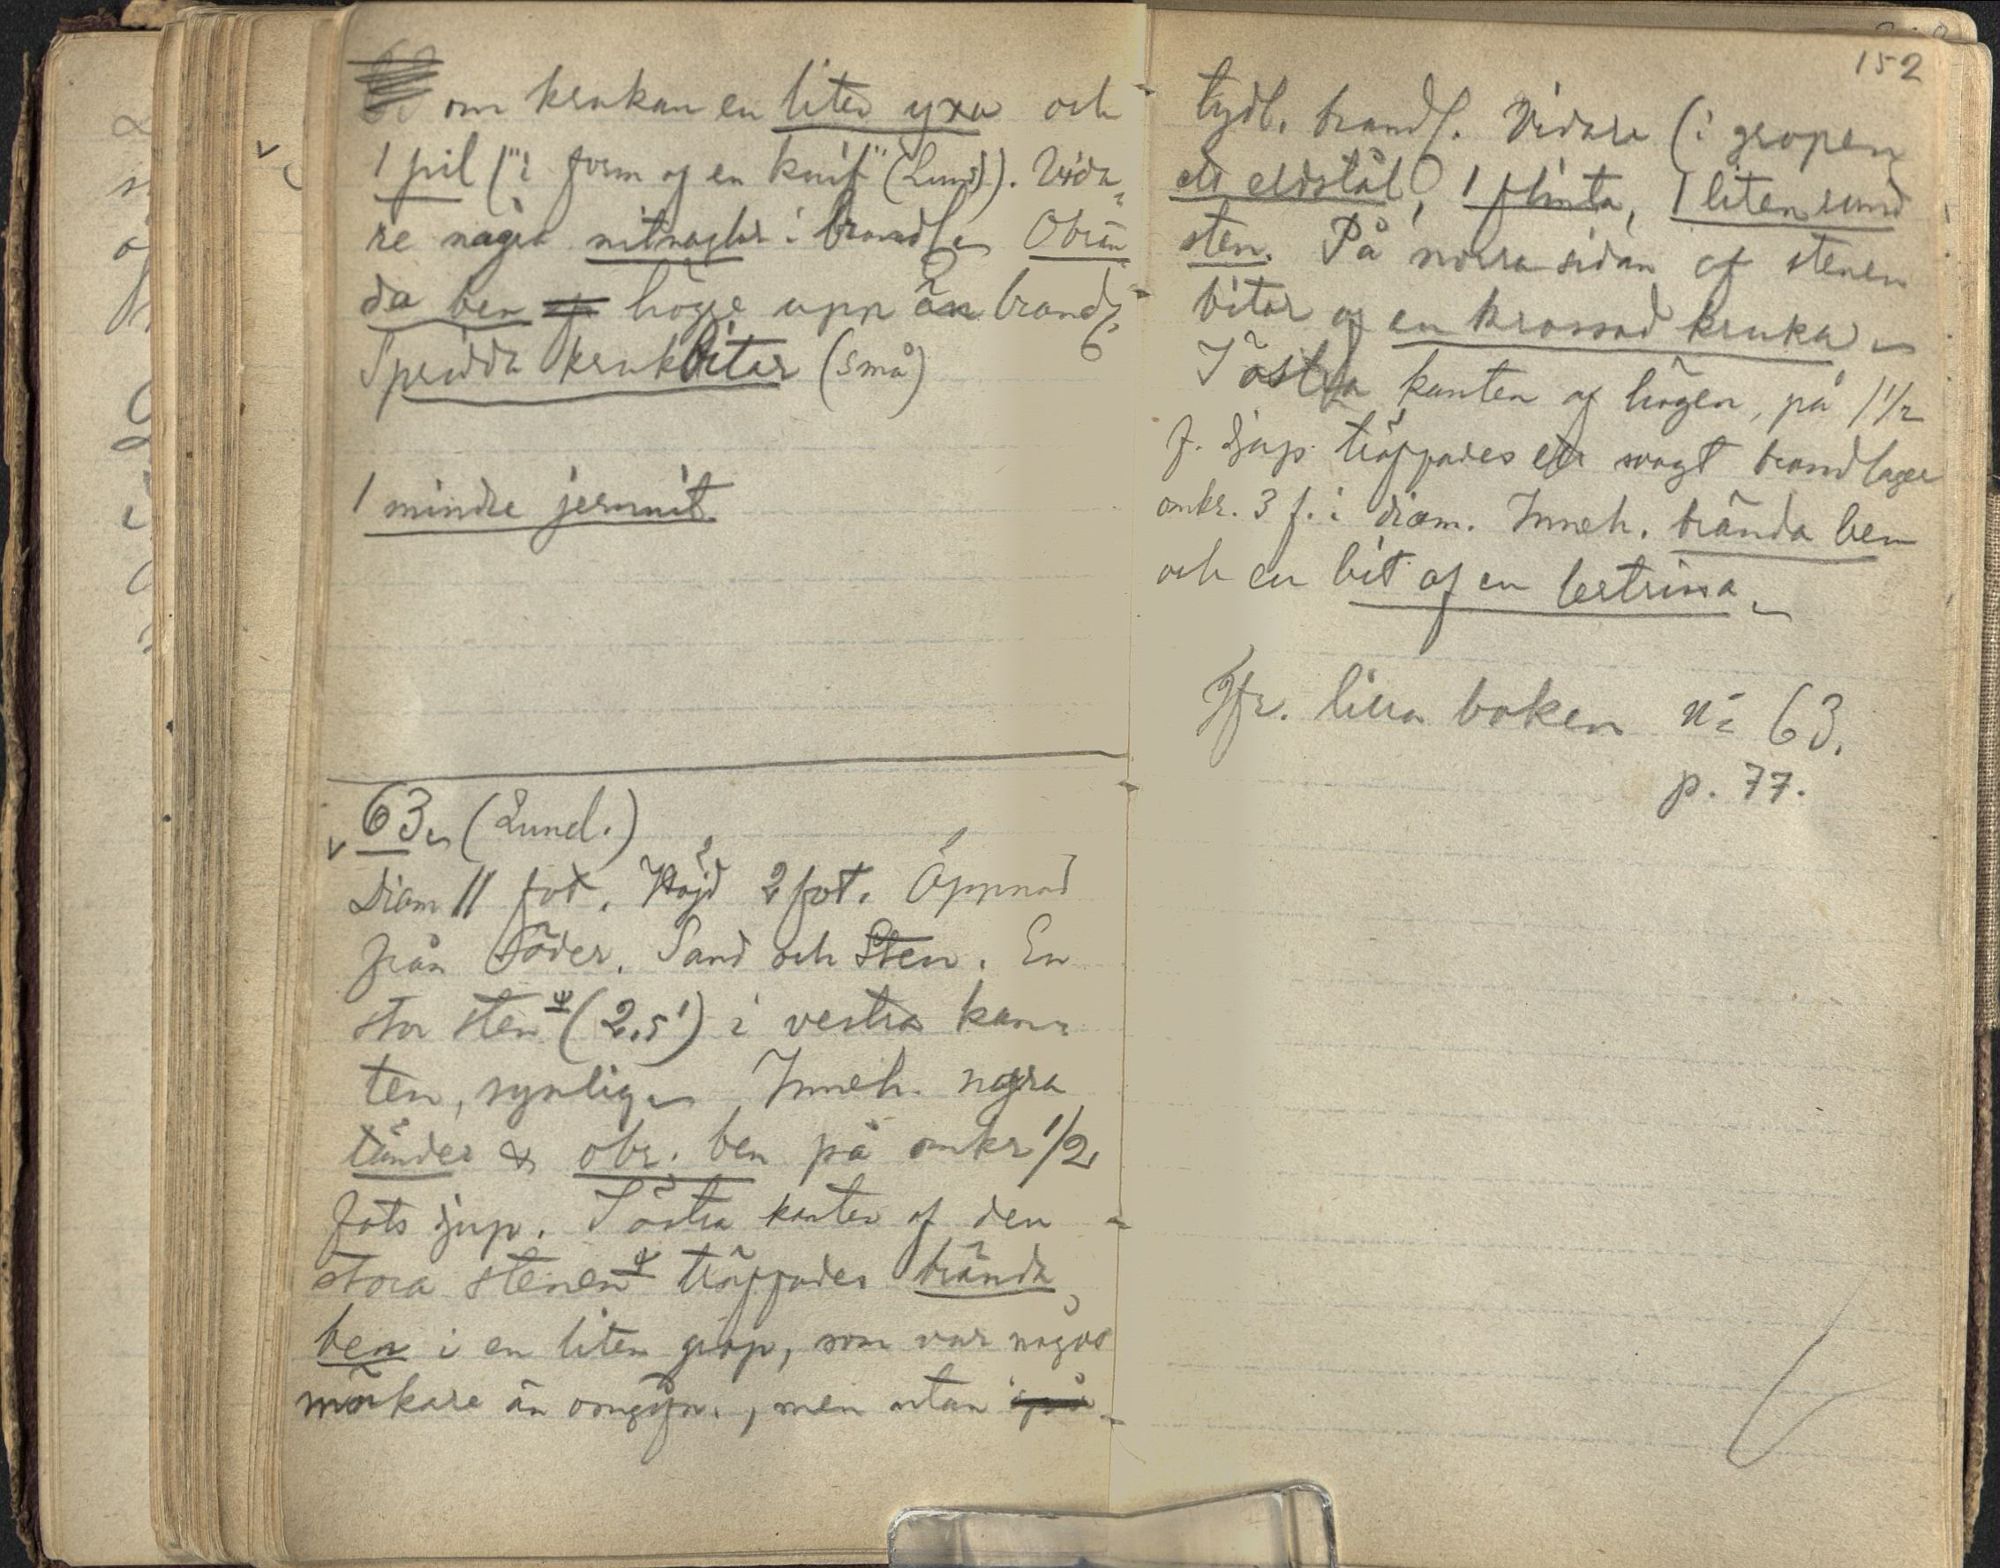 om krukan en liten yxa och
1 pil ("i form af en knif" (Lund)). Vida-
re några nitnaglar i brandl. Obrän-
da ben högre upp än brandl.
Spridda krukbitar (små)
1 mindre jernnit.
63. (Lund.)
Diam 11 fot. Höjd 2 fot. Öppnad
från söder. Sand och Sten. En
stor sten (2,5') i vestra kan-
ten, synlig. Inneh. några
tänder & obr. ben på omkr 1/2
fots djup. I östra kanten af den
stora stenen träffades brända
ben i en liten grop, som var något
mörkare än omgifn., men utan
152
tydl. brandl. Vidare (i gropen
ett eldstål, 1 flinta, 1 liten rund
sten. På norra sidan af stenen
bitar af en krossad kruka.
I östra kanten af högen, på 1 1/2
f. djup träffades ett svagt brandlager
omkr. 3 f. i diam. Inneh. brända ben
och en bit af en lertrissa.
Jfr. lilla boken No 63.
p. 77.